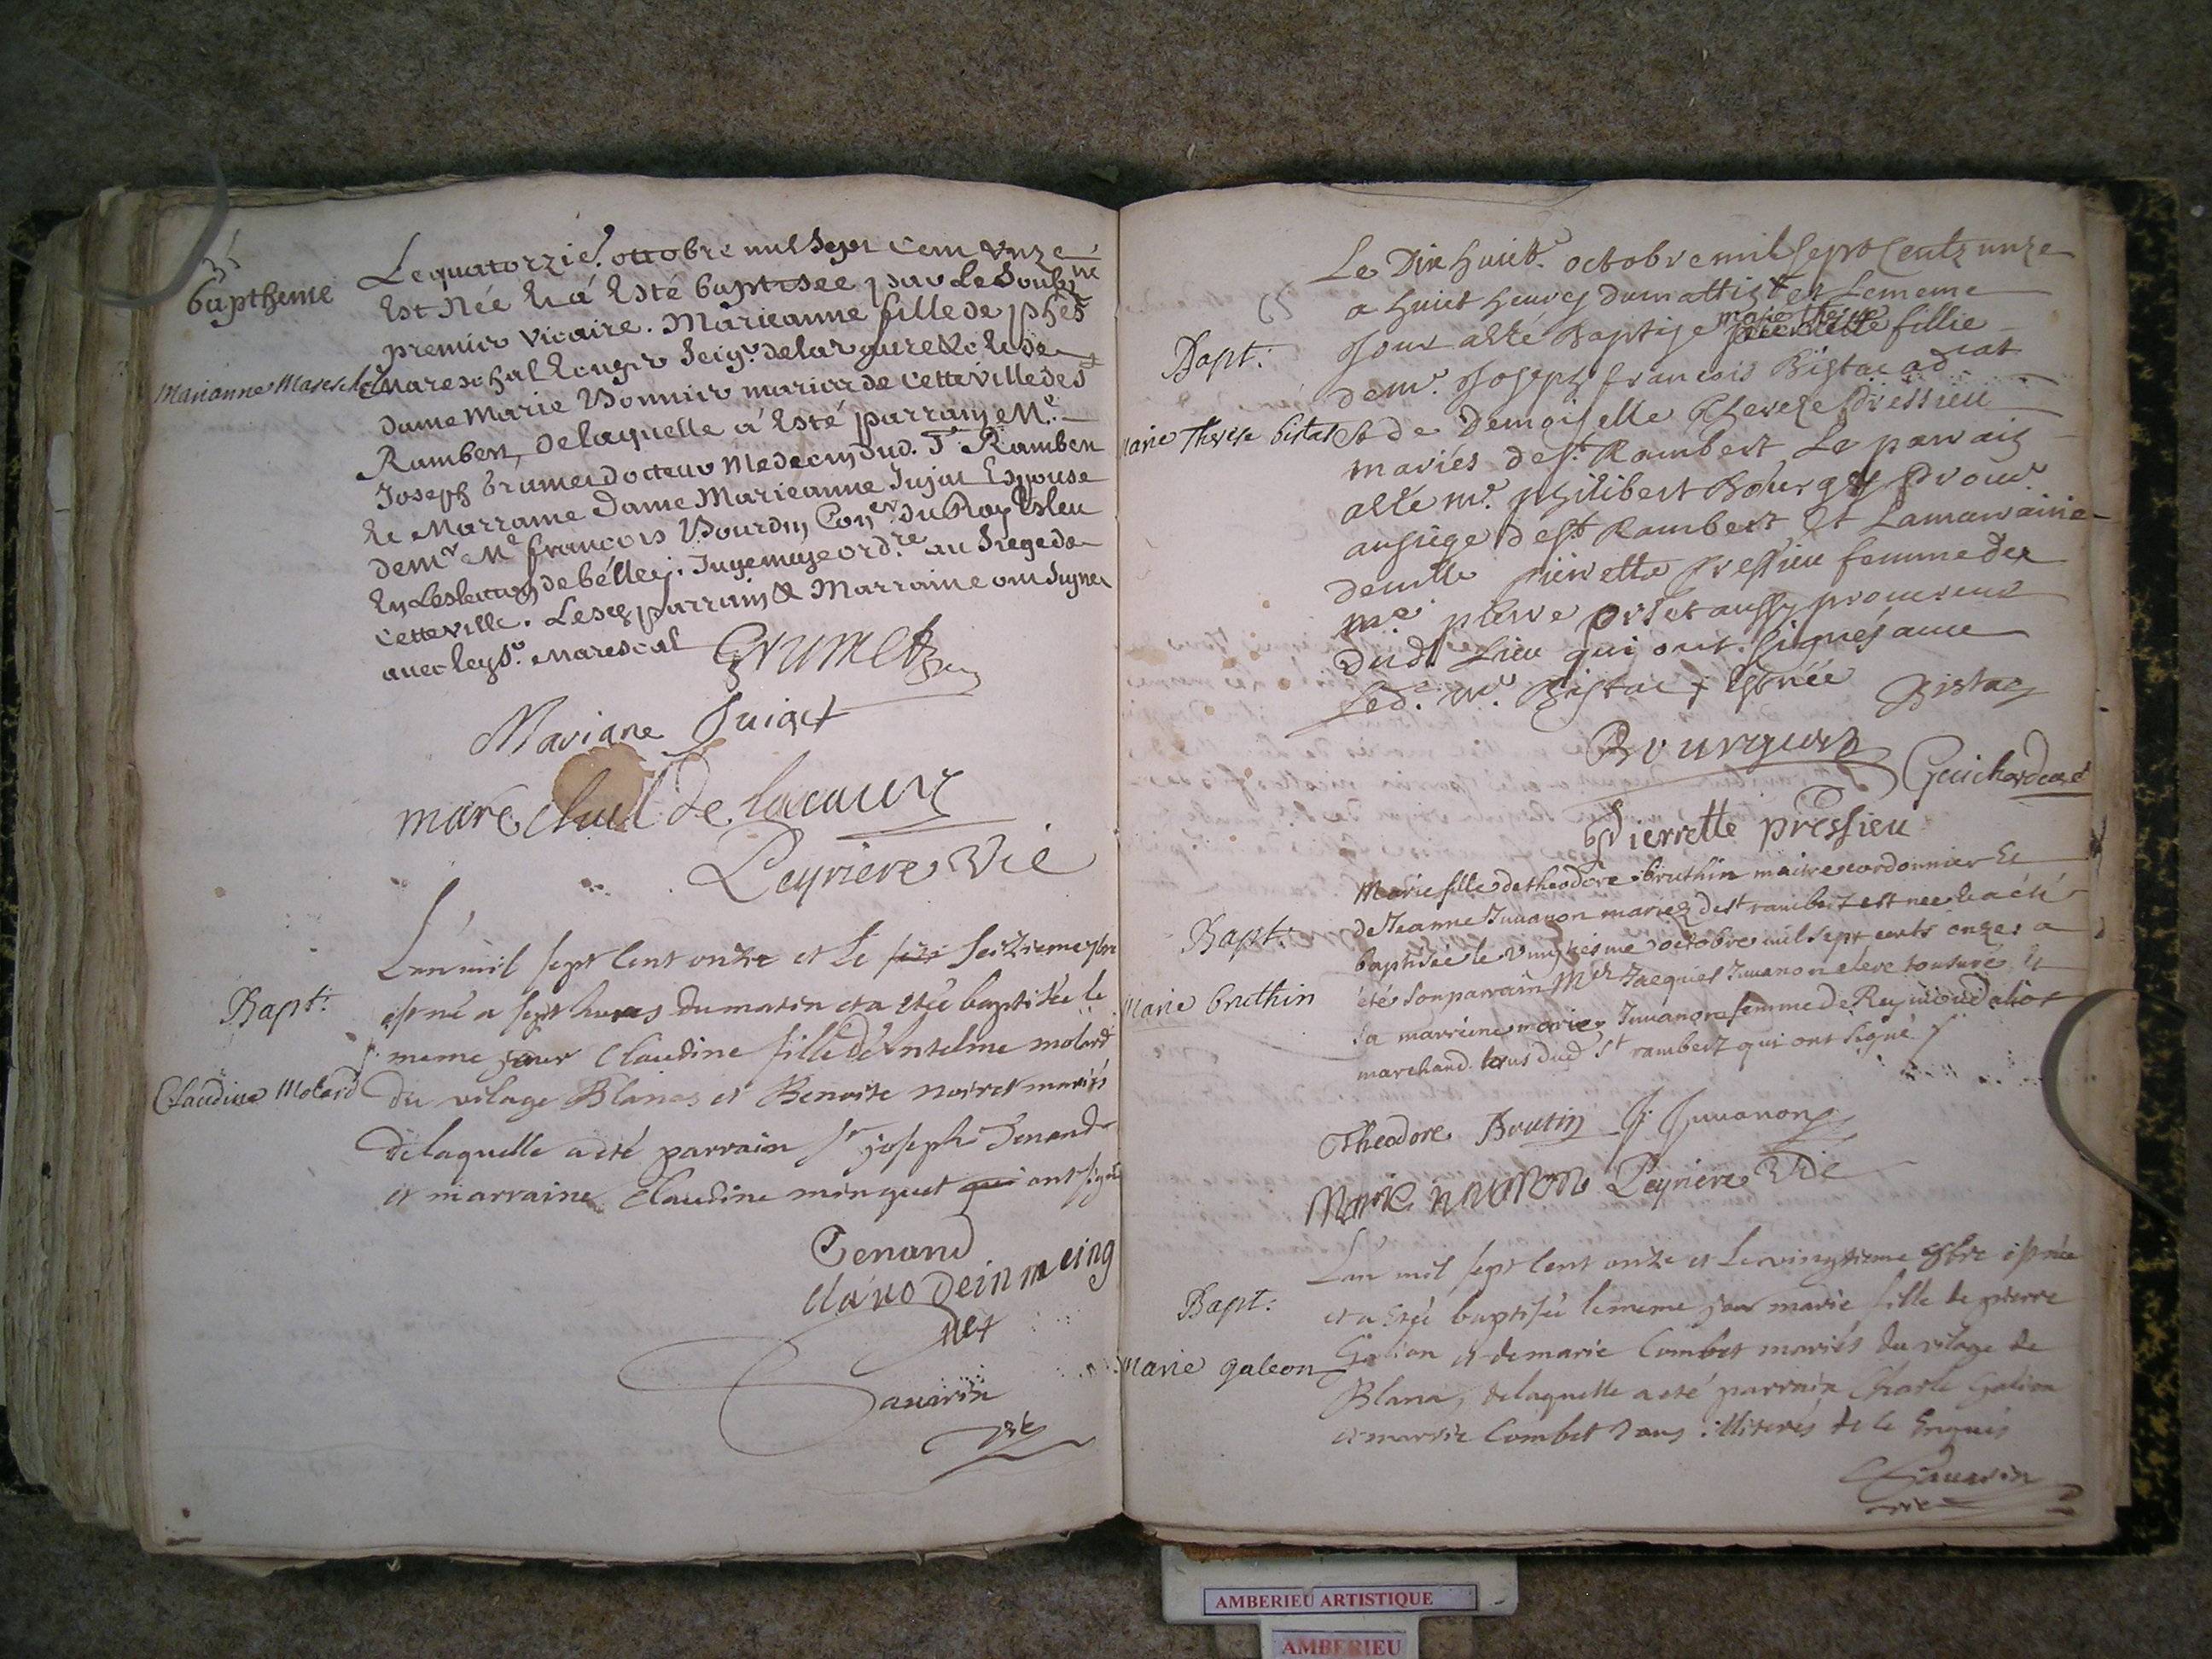 baptheme
Marianne Mareschal
Le quatorzie. octobre mil sept cent unze
Est Née Et á Esté baptisée par Le Soubz.né
premier vicaire. Marieanne fille de
Mareschal Seigr. de la Et de
dame Marie Bonnier mariez de Cette ville de St
Rambert, de laquelle á Esté parrain Me.
Joseph brumet docteur Medecin dud. St Rambert
Et Marraine Dame Marieanne Jujat Espouse
de Mr. Me francois Bourdin Conser. du Roy Esleu
En Leslection de bélley. Juge mage ordre. au Siege de
Cette ville. Lesd. parrain & Marraine ont Signez
avec led Sr. Marescal
Grumet
Mariane Juiget
mareschal de lacour
Leyriere Vie
Bapt:
Claudine Motard
L'an mil sept cent onze et le seizieme
est né a sept heures du matin et a été baptisée le
meme jour Claudine fille d'Antelme motard
du vilage Blanas et Benoite noiret mariés
de laquelle a été parrain Sr joseph Tenand
et marraine Claudine minguet qui ont signé
Tenand
clauodein meing
uet
Sauarin
vie
Bapt:
Marie Therese bistac
Le Dix huict. octobre mil sept Centz unze
a huict heures du mattin est et Le meme
Jour a esté Baptise marie therese fillie
de mr. Joseph francois Bistac adcat
et de Demoiselle Therese Pressieu
mariés de St. Rambert Le parrain
a esté mr. philibert Bourgey Procur.
au siege de St Rambert Et La marraine
demlle pierrette Pressieu femme de
me pierre orset aussy procureur
dud. Lieu qui ont signés avec
Led. mr. Bistac
Bistac
Bourguey
Guichard curé
Pierrette pressieu
Bapt:
Marie bruthin
Marie fille de theodore bruthin maitre cordonnier Et
de Jeanne Juuanon mariez de st rambert est nee et a eté
baptisée le vingtiesme octobre mil sept cents onze a
été son parrain Mre Jacques Juuanon clerc tonsuré Et
sa marrine marie Juuanon femme de Reymond aliot
marchand tous dud St rambert qui ont signé
Theodore Brutin J. Juuanon
Marie iuuanon Leyriere Vie
Bapt:
Marie galeon
L'an mil sept cent onze et le vingtieme 8bre est née
et a eté baptisée le meme jour marie fille de pierre
Galion et de marie Combet mariés du vilage de
Blana, de laquelle a eté parrain Charle Galion
et marie Combet tous illiterés de ce Enquis
Sauarin
vie
AMBERIEU ARTISTIQUE
AMBERIEU